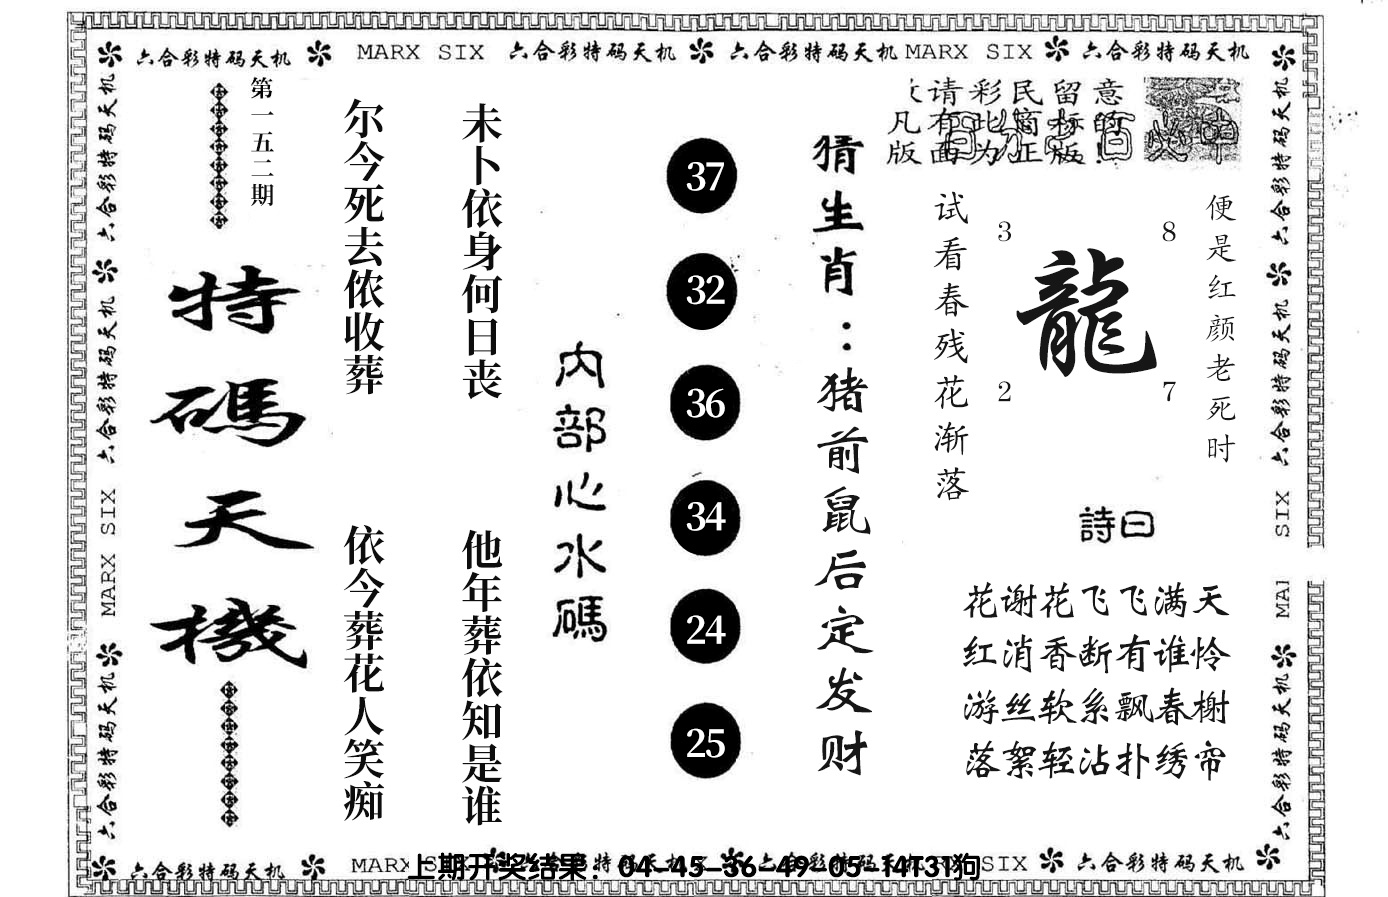 六合彩特码天机 MARX SIX 六合彩特码天机 六合彩特码天机 MARX SIX 六合彩特码天机
六合彩特码天机 六合彩特码天机 MARX SIX 六合彩特码天机
第一五二期
特碼天機
尔今死去侬收葬
依今葬花人笑痴
未卜依身何日丧
他年葬依知是谁
内部心水碼
37
32
36
34
24
25
猜生肖：猪前鼠后定发财
请彩民留意
凡有此窗标的
版面为正版!
试看春残花渐落
3 8
龍
2 7
便是红颜老死时
詩曰
花谢花飞飞满天
红消香断有谁怜
游丝软系飘春榭
落絮轻沾扑绣帘
六合彩特码天机 六合彩特码天机 SIX MAI 六合彩特码天机
六合彩特码天机 MARX SIX 六合彩特码天机 六合彩特码天机 SIX 六合彩特码天机
上期开奖结果：04-45-36-49-05-14T31狗